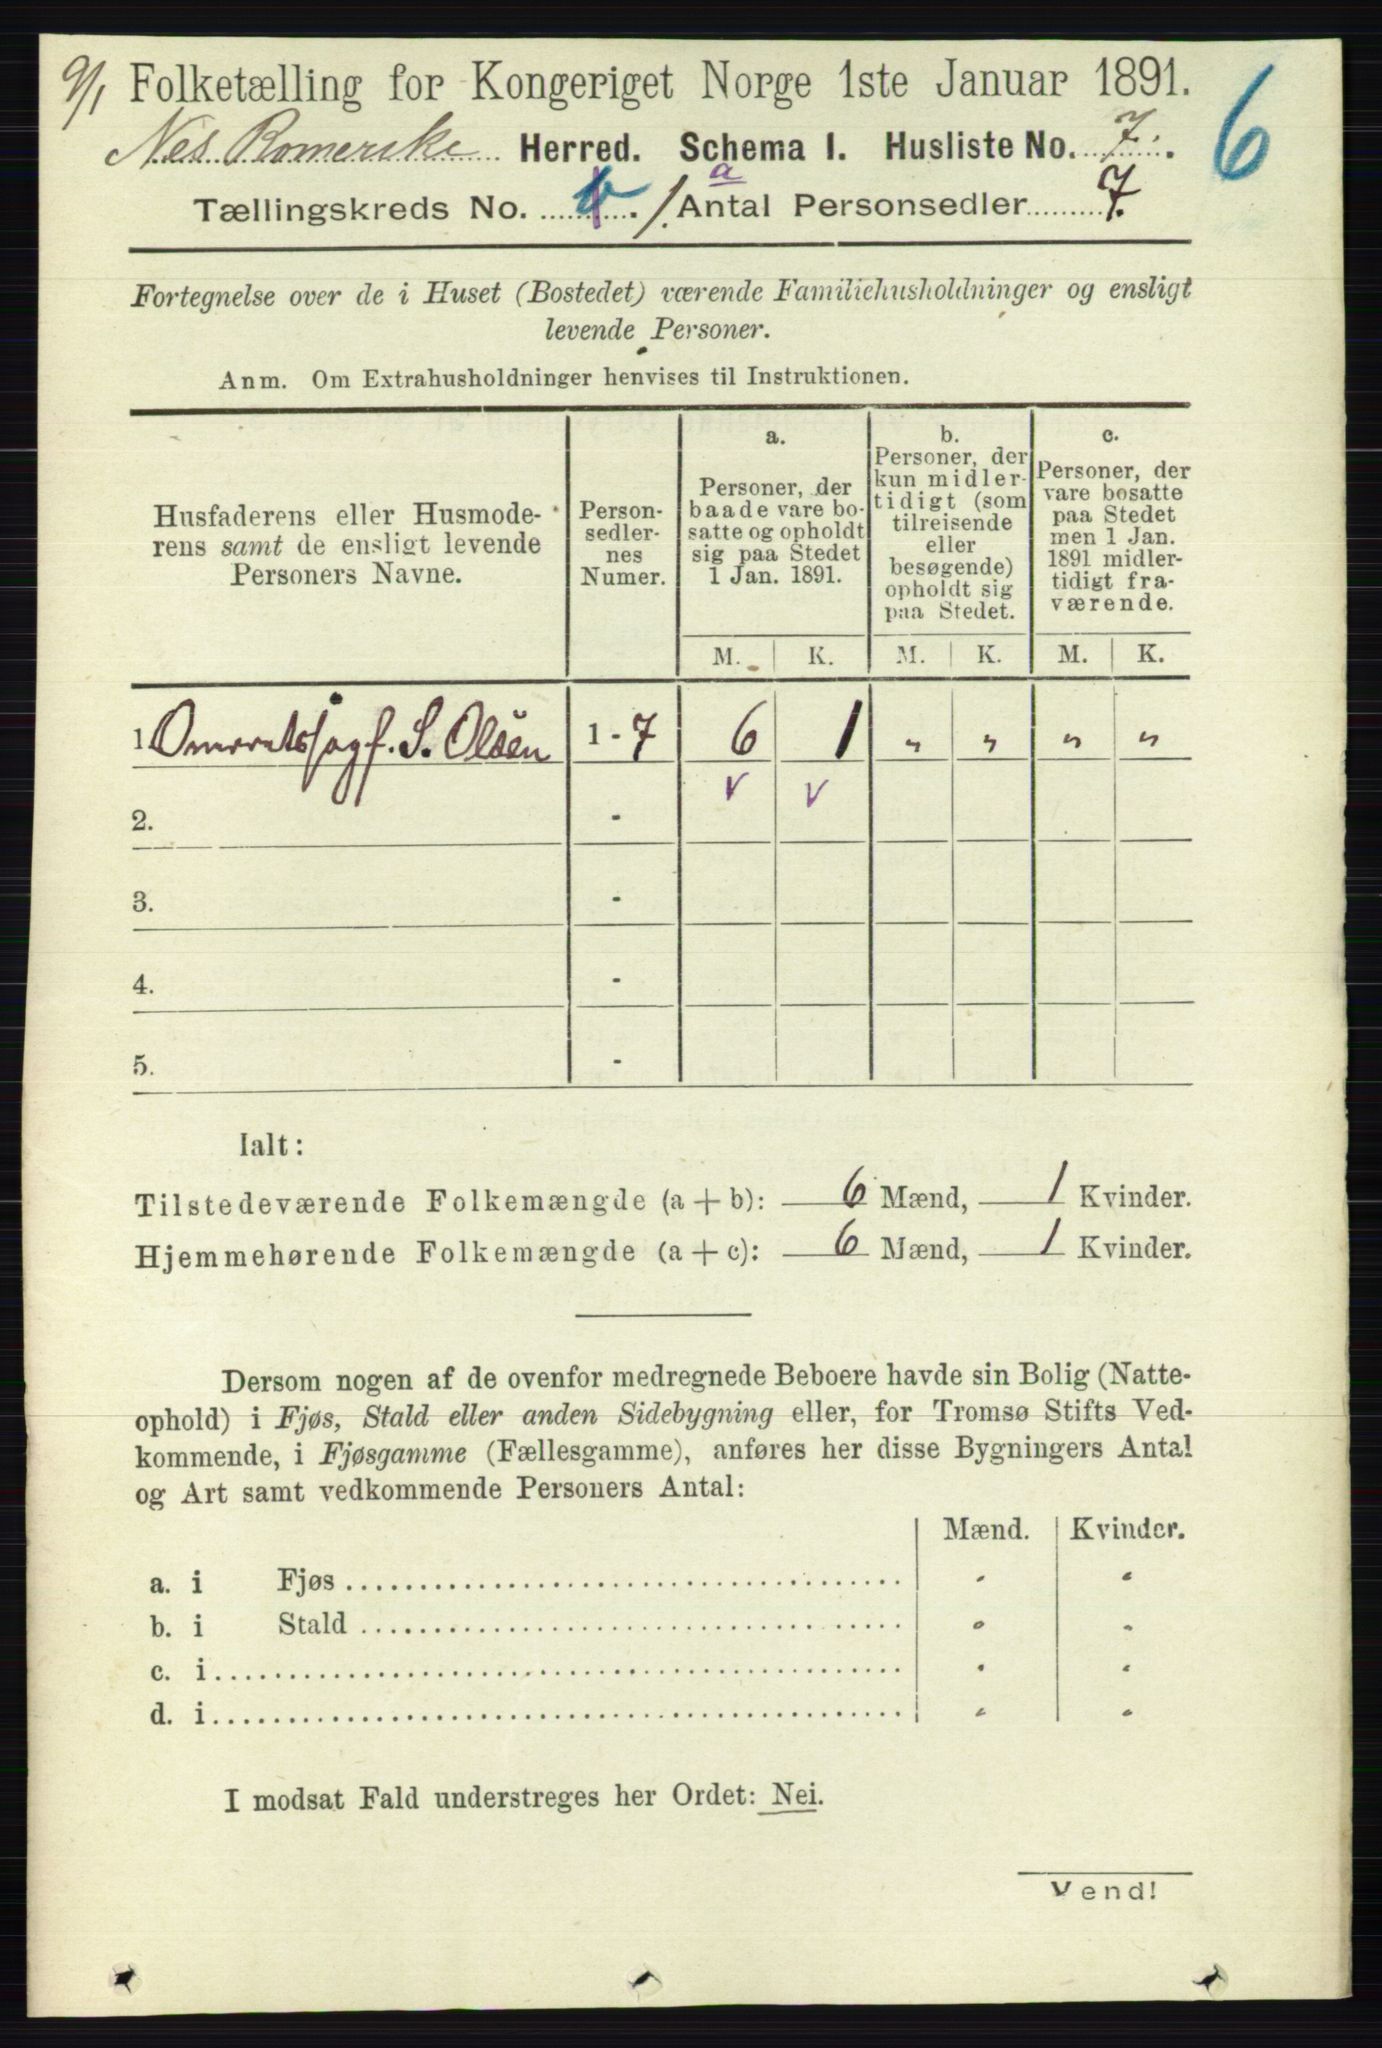 9/1 Folketælling for Kongeriget Norge 1ste Januar 1891. 6
Nes Romerike Herred. Schema I. Husliste No. 7.
Tællingskreds No. 6. /1. a Antal Personsedler 7.
Fortegnelse over de i Huset (Bostedet) værende Familiehusholdninger og ensligt
levende Personer.
Anm. Om Extrahusholdninger henvises til Instruktionen.
Husfaderens eller Husmode-
rens samt de ensligt levende
Personers Navne.
Person-
sedler-
nes
Numer.
a.
Personer, der
baade vare bo-
satte og opholdt
sig paa Stedet
1 Jan. 1891.
b.
Personer, der
kun midler-
tidigt (som
tilreisende
eller
besøgende)
opholdt sig
paa Stedet.
c.
Personer, der
vare bosatte
paa Stedet
men 1 Jan.
1891 midler-
tidigt fra-
værende.
M. K. M. K. M. K.
1 S. Olsen 1 - 7 6 1 " " " "
v v
2. -
3. -
4. -
5. -
Ialt:
Tilstedeværende Folkemængde (a + b): 6 Mænd, 1 Kvinder.
Hjemmehørende Folkemængde (a + c): 6 Mænd, 1 Kvinder.
Dersom nogen af de ovenfor medregnede Beboere havde sin Bolig (Natte-
ophold) i Fjøs, Stald eller anden Sidebygning eller, for Tromsø Stifts Ved-
kommende, i Fjøsgamme (Fællesgamme), anføres her disse Bygningers Antal
og Art samt vedkommende Personers Antal:
Mænd. Kvinder.
a. i Fjøs " "
b. i Stald " "
c. i " "
d. i " "
I modsat Fald understreges her Ordet: Nei.
Vend!